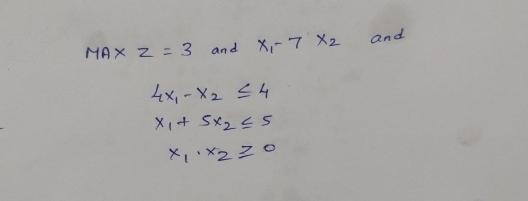 MAX Z = 3 and x₁ - 7 x₂ and
4x₁ - x₂ ≤ 4
x₁ + 5x₂ ≤ 5
x₁ . x₂ ≥ 0